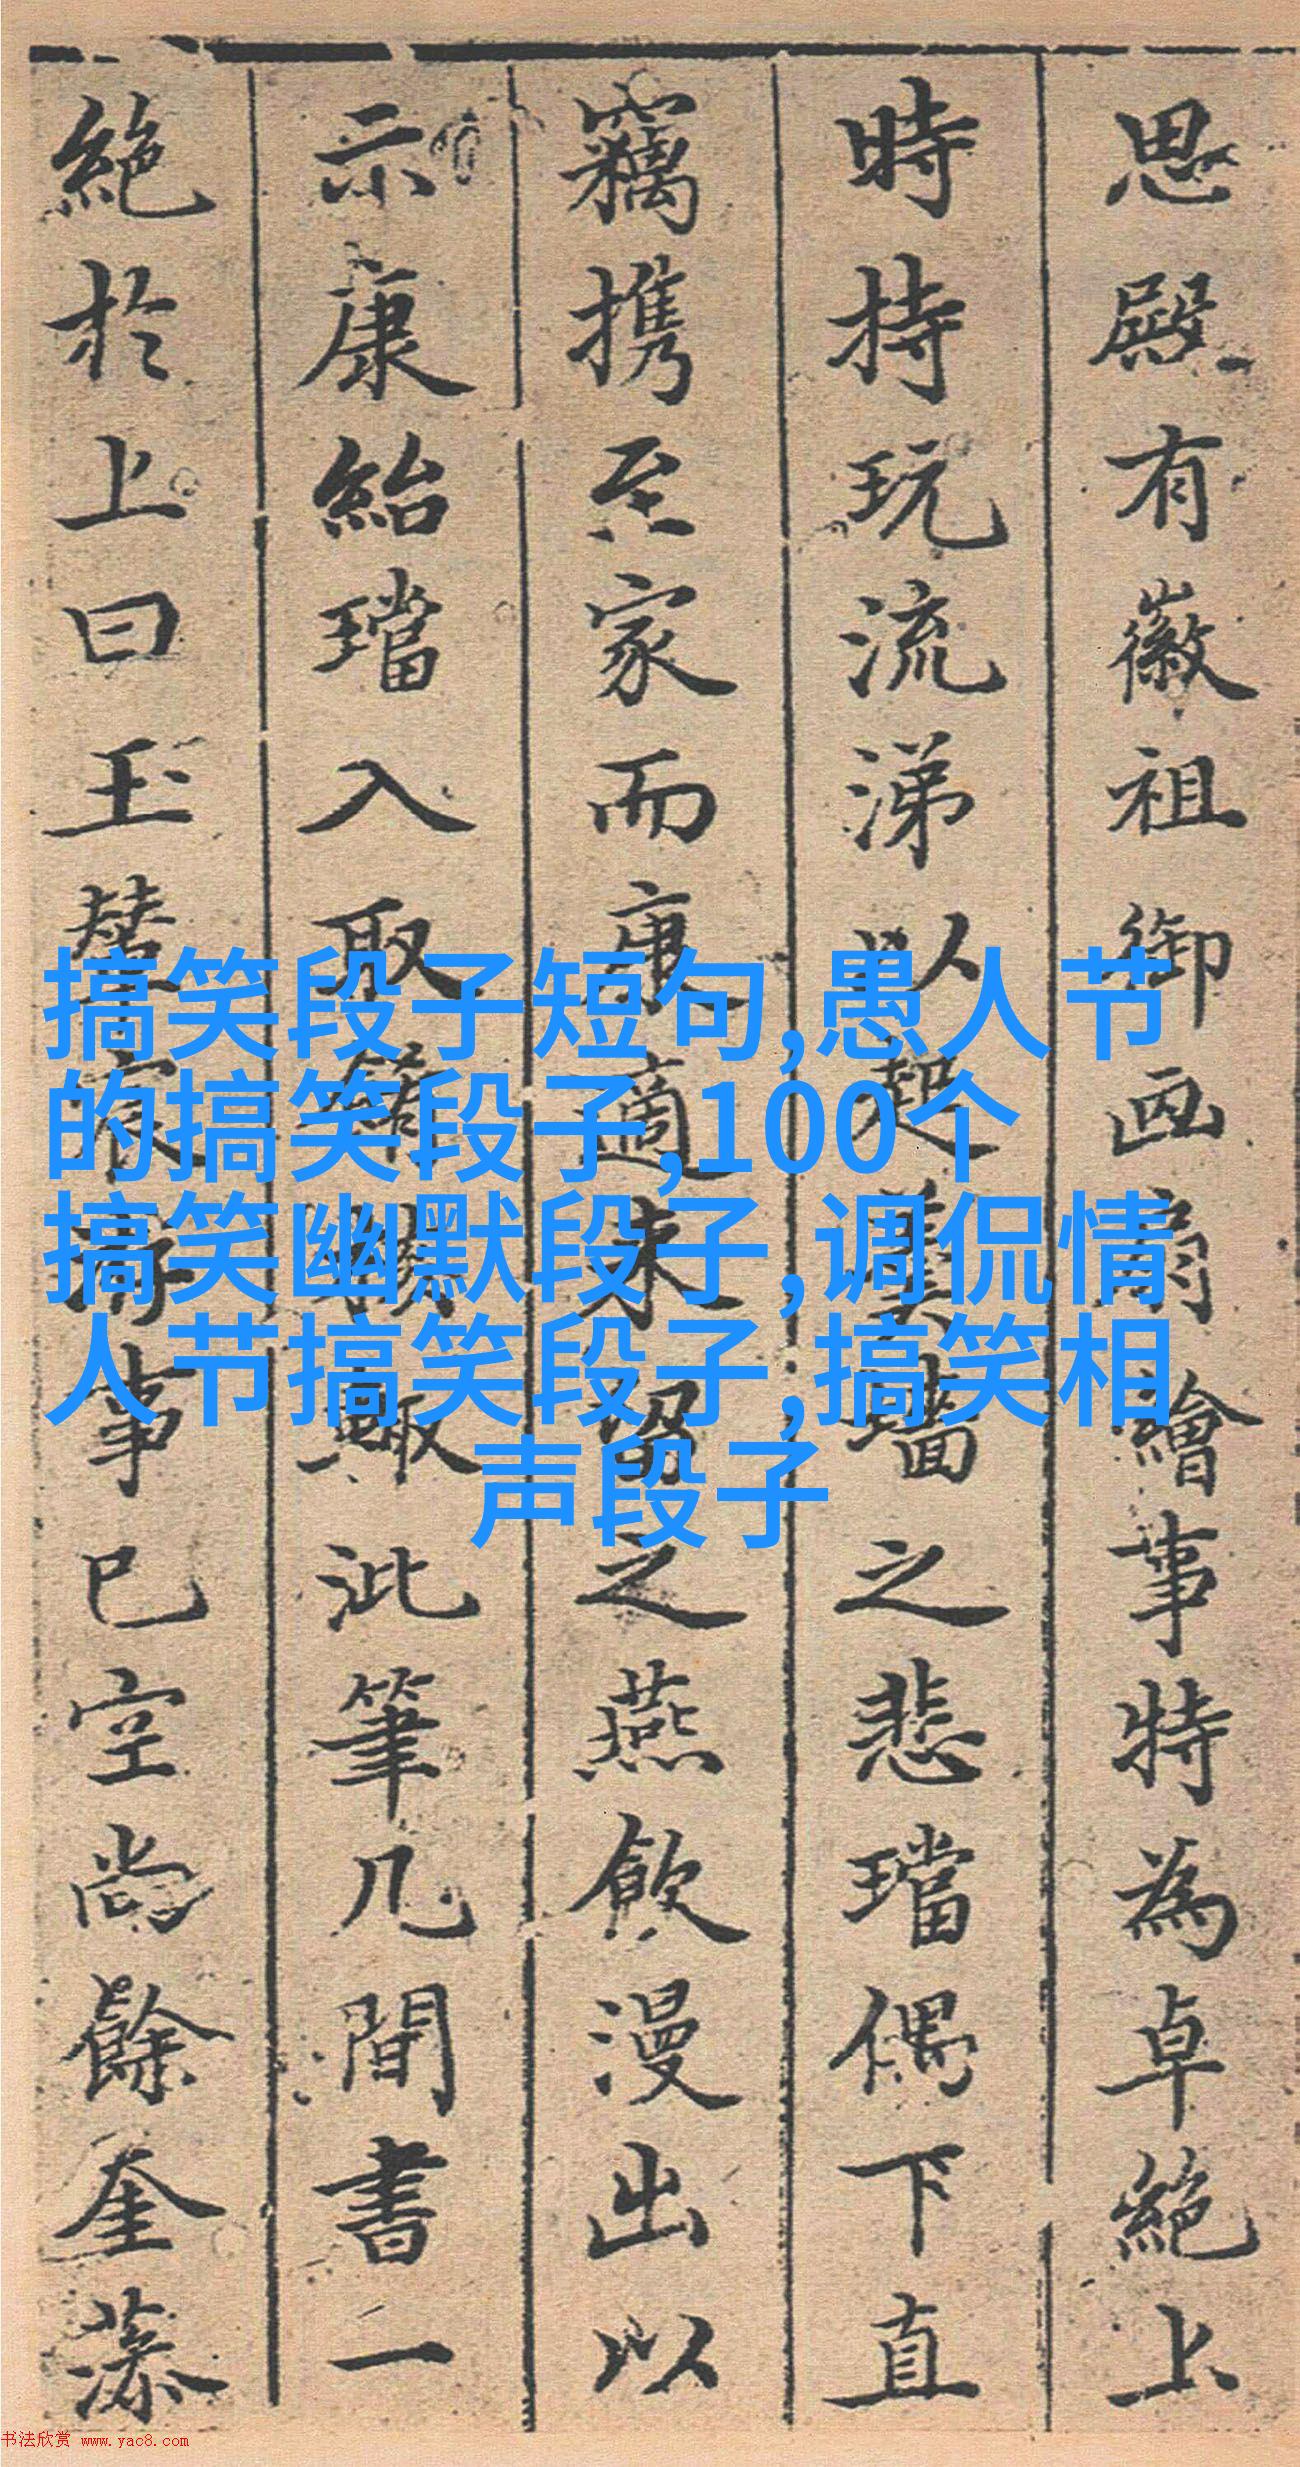 思殿有徽祖御画扇繪事特為卓絶上
時持玩流涕以起羹墻之悲璫偶下直
竊携至家而康適来留之燕飲漫出以
示康紿璫入取輙泚筆几間書一
絶於上曰玉輦宸游事已空尚餘奎藻
搞笑段子短句,愚人节
的搞笑段子,100个
搞笑幽默段子,调侃情
人节搞笑段子,搞笑相
声段子
书法欣赏 www.yac8.com